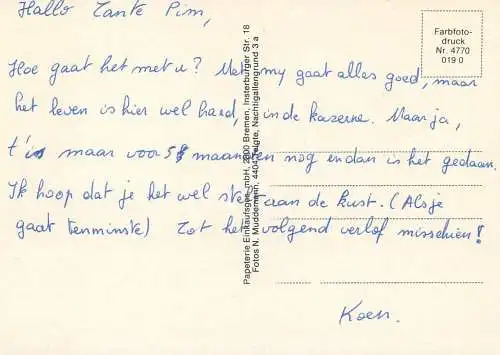 Hallo Tante Pim,
Hoe gaat het met u? Met my gaat alles goed, maar
het leven is hier wel hard, in de kazerne. Maar ja,
t'is maar voor 5 maanden nog en dan is het gedaan.
Ik hoop dat je het wel stelt aan de kust. (Als je
gaat tenminste) Tot het volgend verlof misschien!
Koen.
Farbfoto-
druck
Nr. 4770
019 0
Papeterie Einkaufsges. mbH, 2800 Bremen, Insterburger Str. 18
Fotos N. Muddemann, 4404 Telgte, Nachtigallengrund 3 a